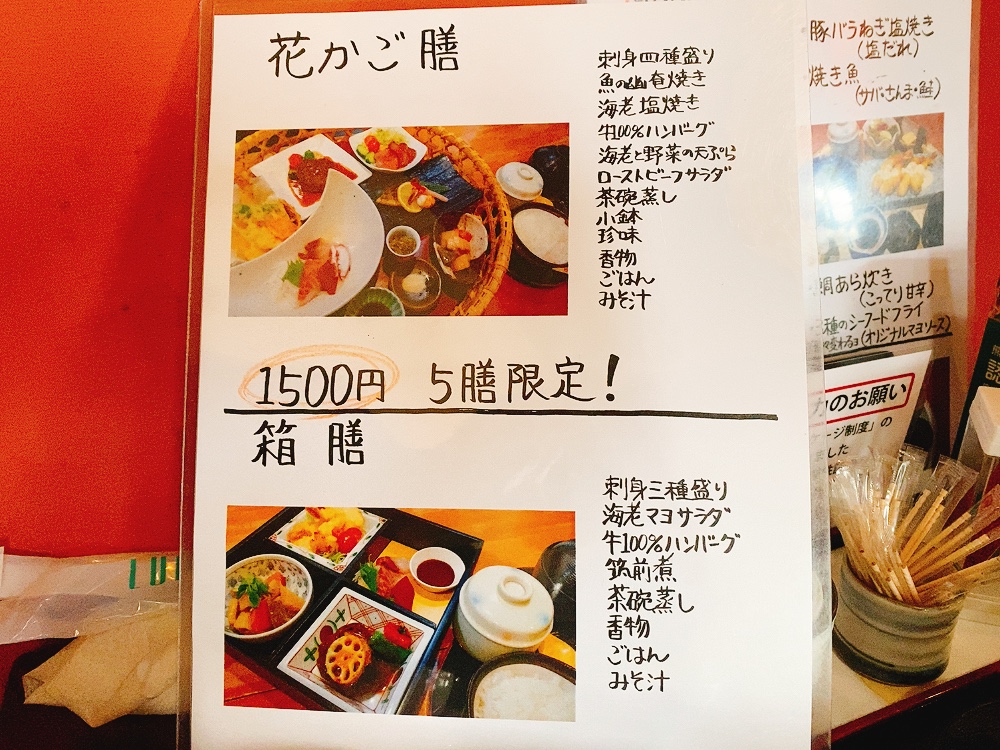 花かご膳
刺身四種盛り
魚の幽庵焼き
海老塩焼き
牛100%ハンバーグ
海老と野菜の天ぷら
ローストビーフサラダ
茶碗蒸し
小鉢
珍味
香物
ごはん
みそ汁
1500円 5膳限定!
箱膳
刺身三種盛り
海老マヨサラダ
牛100%ハンバーグ
筑前煮
茶碗蒸し
香物
ごはん
みそ汁
豚バラねぎ塩焼き
(塩だれ)
焼き魚
(サバ・さんま・鮭)
鯛あら炊き
(こってり甘辛)
種のシーフードフライ
(オリジナルマヨソース)
のお願い
ージ制度」の
した